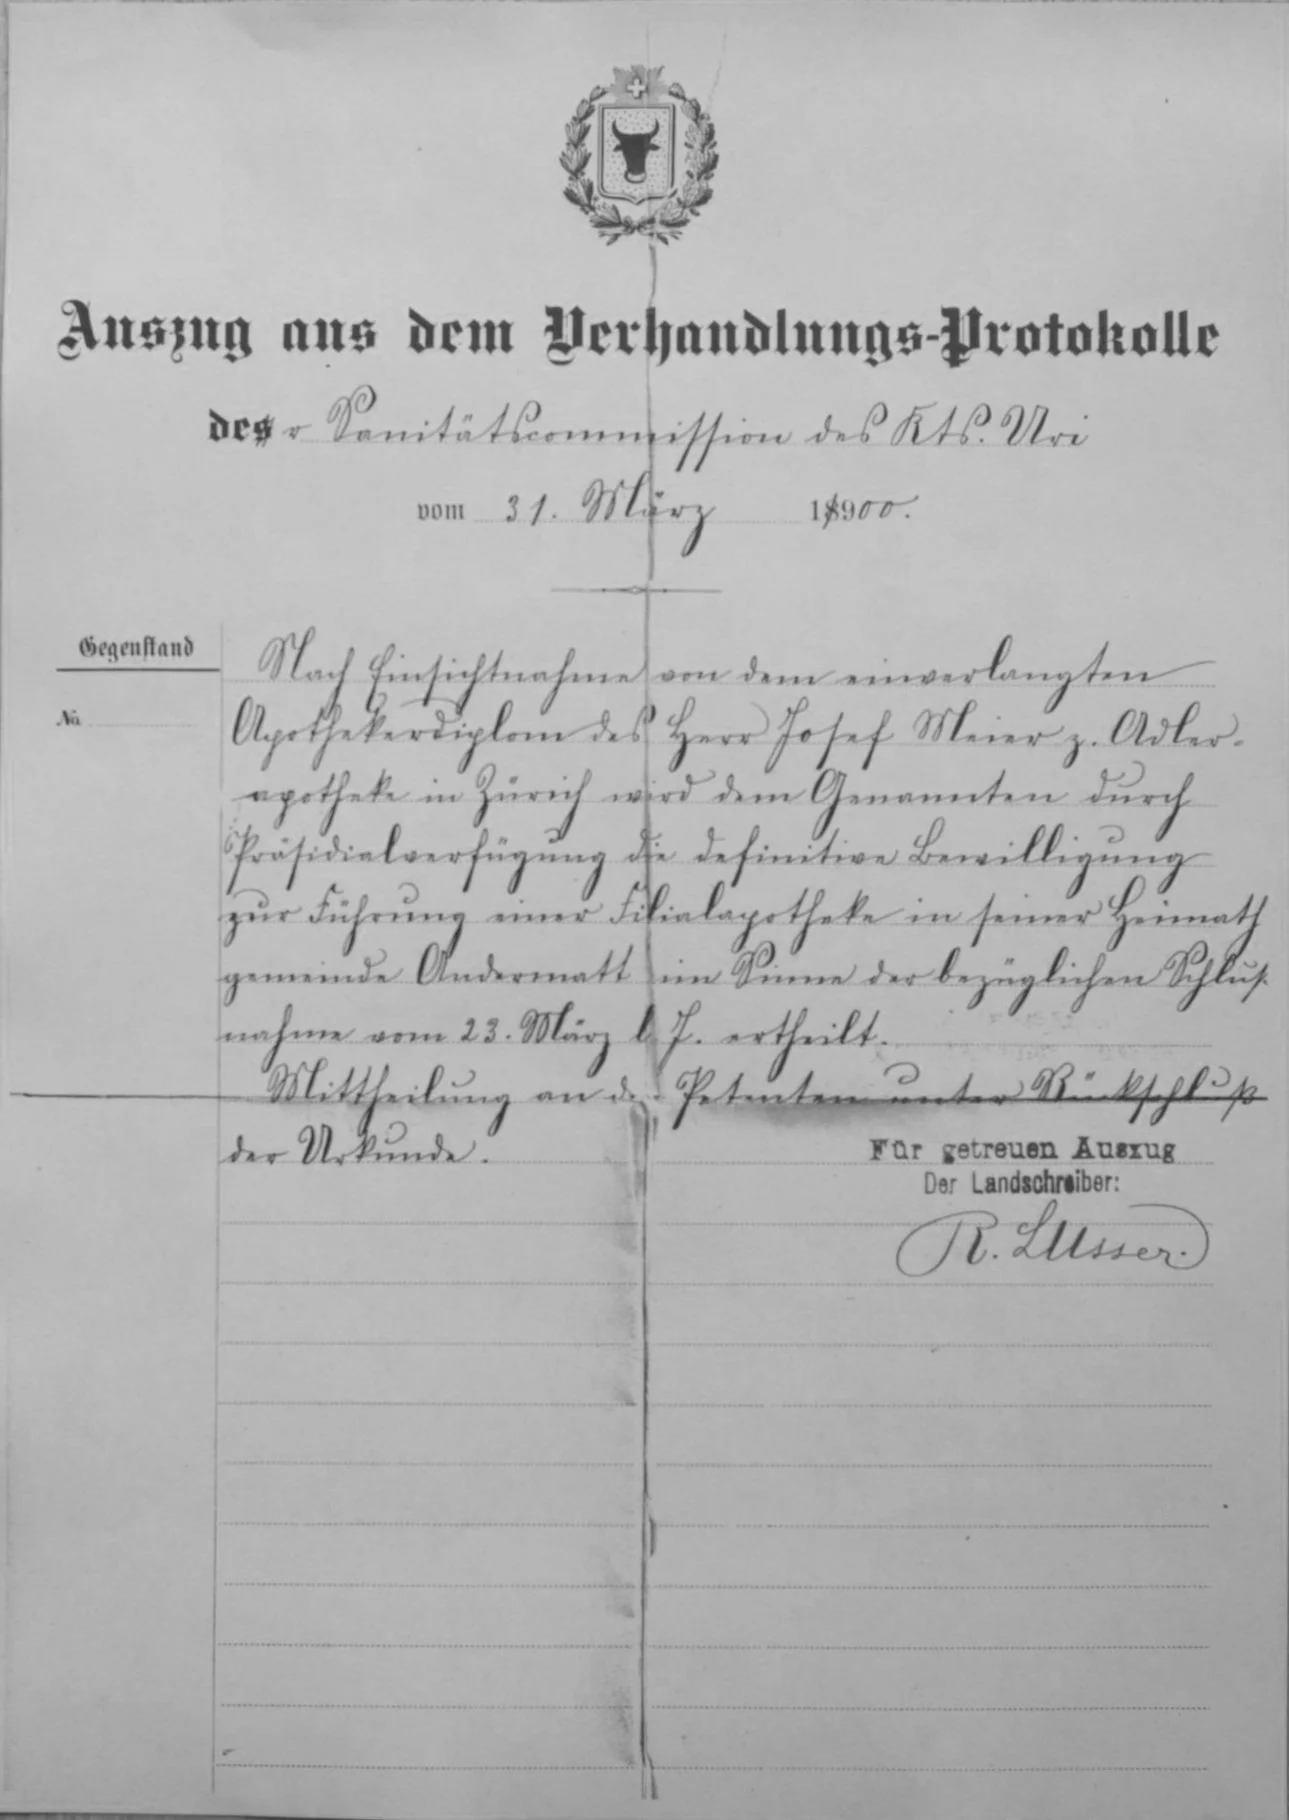 Auszug aus dem Verhandlungs-Protokolle
der Sanitätscommission des Kts. Uri
vom 31. März 1900.
Gegenstand
No.
Nach Einsichtnahme von dem einverlangten
Apothekerdiplom des Herr Josef Meier z. Adler-
apotheke in Zürich wird dem Genannten durch
Präsidialverfügung die definitive Bewilligung
zur Führung einer Filialapotheke in seiner Heimath
gemeinde Andermatt im Sinne der bezüglichen Schlus-
nahme vom 23. März l. J. ertheilt.
Mittheilung an den Petenten unter Rückschluß
der Urkunde.
Für getreuen Auszug
Der Landschreiber:
R. Lusser.